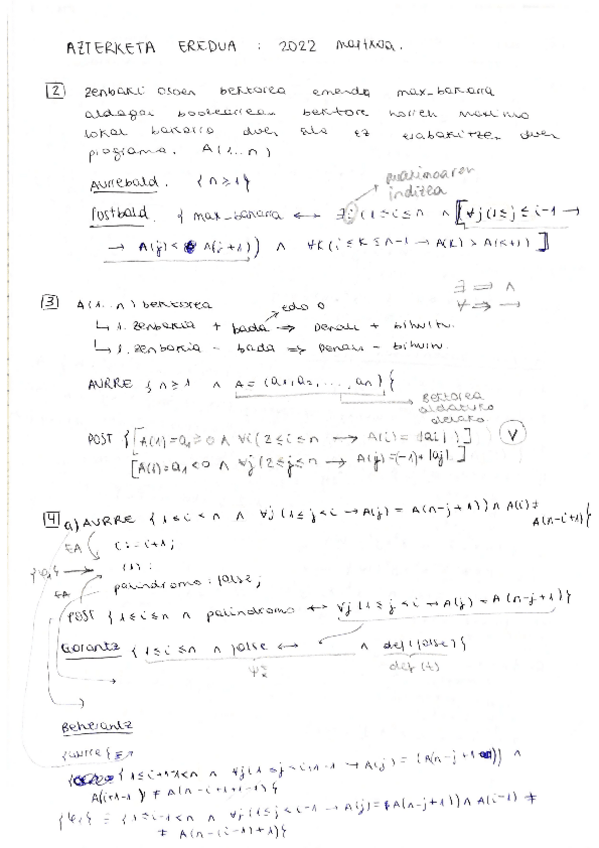 AZTERKETA EREDUA : 2022 martxoa.
2 Zenbaki osoen bektorea emanda max-bakarra
aldagai boolearrean bektore horren maximo
lokal bakarra duen ala ez erabakitzen duen
programa. A(1...n)
Aurrebald. {n≥1}
maximoaren
indizea
Postbald. { max-bakarra ↔ ∃i (1≤i≤n ∧ [∀j (1≤j≤i-1 →
→ A(j) < A(j+1)) ∧ ∀k (i≤k≤n-1 → A(k) > A(k+1)) ]
∃ ⇒ ∧
∀ ⇒ →
3 A(1...n) bektorea
edo 0
↳ 1. zenbakia + bada ⇒ Denak + bihurtu.
↳ 1. zenbakia - bada ⇒ Denak - bihurtu.
AURRE { n≥1 ∧ A = (a1, a2, ..., an) }
Bektorea
aldatuko
delako
POST { [A(1)=a1≥0 ∧ ∀i (2≤i≤n → A(i) = |ai| ) ] ∨
[A(1)=a1<0 ∧ ∀j (2≤j≤n → A(j)=(-1)*|aj| ]
4 a) AURRE {1≤i<n ∧ ∀j (1≤j<i → A(j) = A(n-j+1)) ∧ A(i) ≠
A(n-i+1)}
EA i:=i+1;
EA palindromo:=false;
POST {1≤i≤n ∧ palindromo ↔ ∀j (1≤j<i → A(j) = A(n-j+1)}
Gorantz {1≤i≤n ∧ false ↔ ∧ def(false)}
def(t)
Beherantz
{AURRE} ≡
{1≤i-1<n ∧ ∀j (1≤j<i-1 → A(j) = (A(n-j+1)) ∧
A(i-1) ≠ A(n-(i-1)+1}
≡ {1≤i-1<n ∧ ∀j (1≤j<i-1 → A(j) = A(n-j+1)) ∧ A(i-1) ≠
≠ A(n-(i-1)+1)}